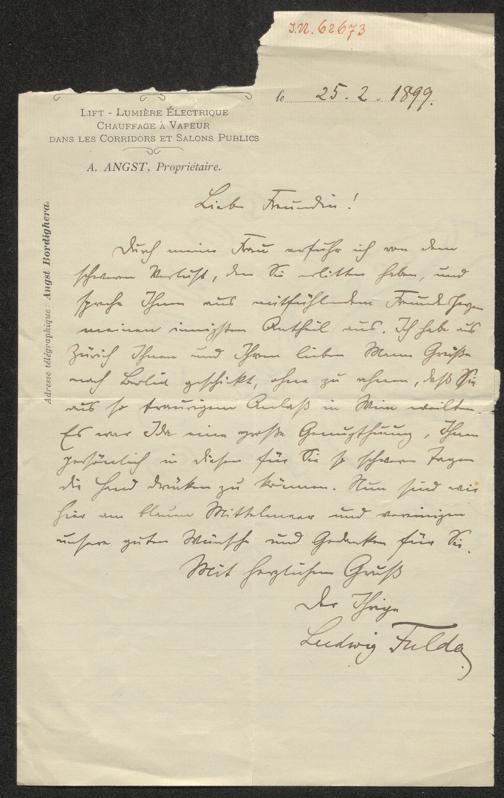 I.N. 62673
le 25. 2. 1899.
LIFT - LUMIÈRE ÉLECTRIQUE
CHAUFFAGE À VAPEUR
DANS LES CORRIDORS ET SALONS PUBLICS
A. ANGST, Propriétaire.
Adresse télégraphique: Angst Bordighera.
Liebe Freundin!
Durch meine Frau erfuhr ich von dem
schweren Verlust, den Sie erlitten haben, und
spreche Ihnen aus mitfühlendem Freundesherzen
meinen innigsten Antheil aus. Ich habe aus
Zürich Ihnen und Ihrem lieben Mann Grüße
nach Berlin geschickt, ohne zu ahnen, daß Sie
aus so traurigem Anlaß in Wien weilten.
Es war Ida eine große Genugthuung, Ihnen
persönlich in diesen für Sie so schweren Tagen
die Hand drücken zu können. Nun sind wir
hier am blauen Mittelmeer und vereinigen
unsere guten Wünsche und Gedanken für Sie.
Mit herzlichem Gruß
Der Ihrige
Ludwig Fulda